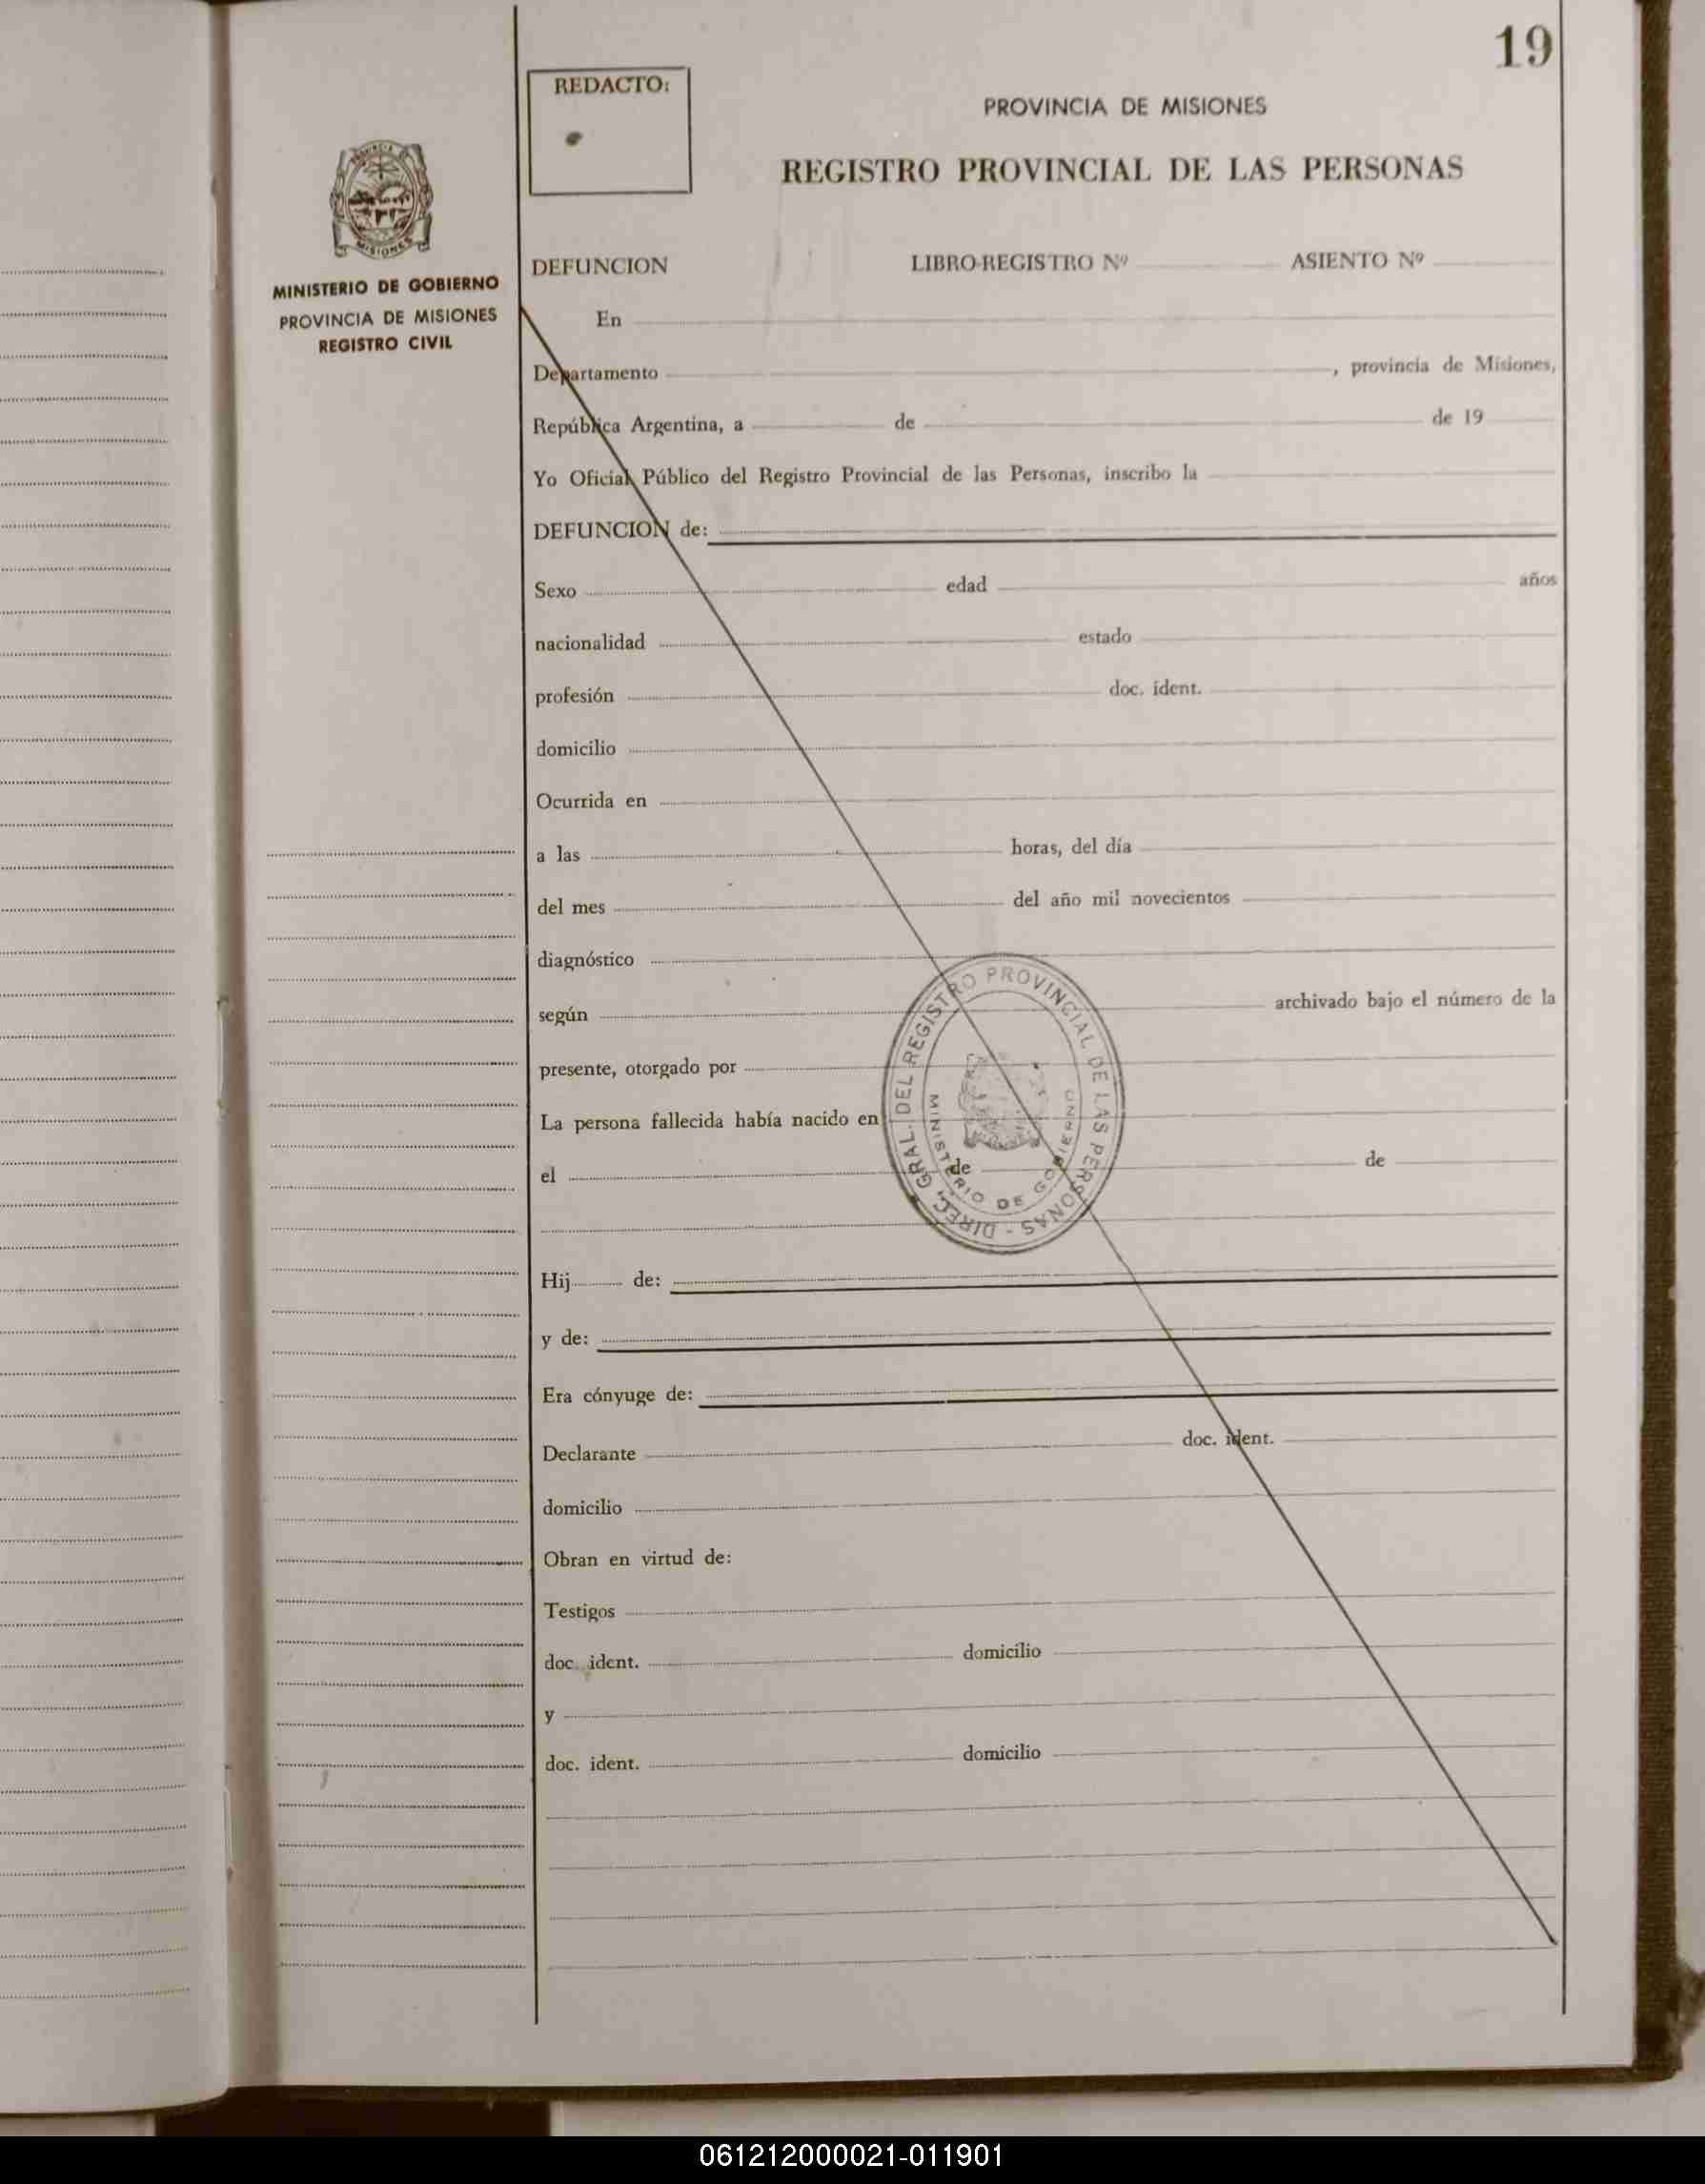 19
REDACTO:
PROVINCIA DE MISIONES
REGISTRO PROVINCIAL DE LAS PERSONAS
MISIONES
MINISTERIO DE GOBIERNO
PROVINCIA DE MISIONES
REGISTRO CIVIL
DEFUNCION LIBRO-REGISTRO Nº ASIENTO Nº
En
Departamento , provincia de Misiones,
República Argentina, a de de 19
Yo Oficial Público del Registro Provincial de las Personas, inscribo la
DEFUNCION de:
Sexo edad años
nacionalidad estado
profesión doc. ident.
domicilio
Ocurrida en
a las horas, del día
del mes del año mil novecientos
diagnóstico
según archivado bajo el número de la
presente, otorgado por
La persona fallecida había nacido en
el de de
DIREC. GRAL. DEL REGISTRO PROVINCIAL DE LAS PERSONAS -
MINISTERIO DE GOBIERNO
Hij de:
y de:
Era cónyuge de:
Declarante doc. ident.
domicilio
Obran en virtud de:
Testigos
doc. ident. domicilio
y
doc. ident. domicilio
061212000021-011901